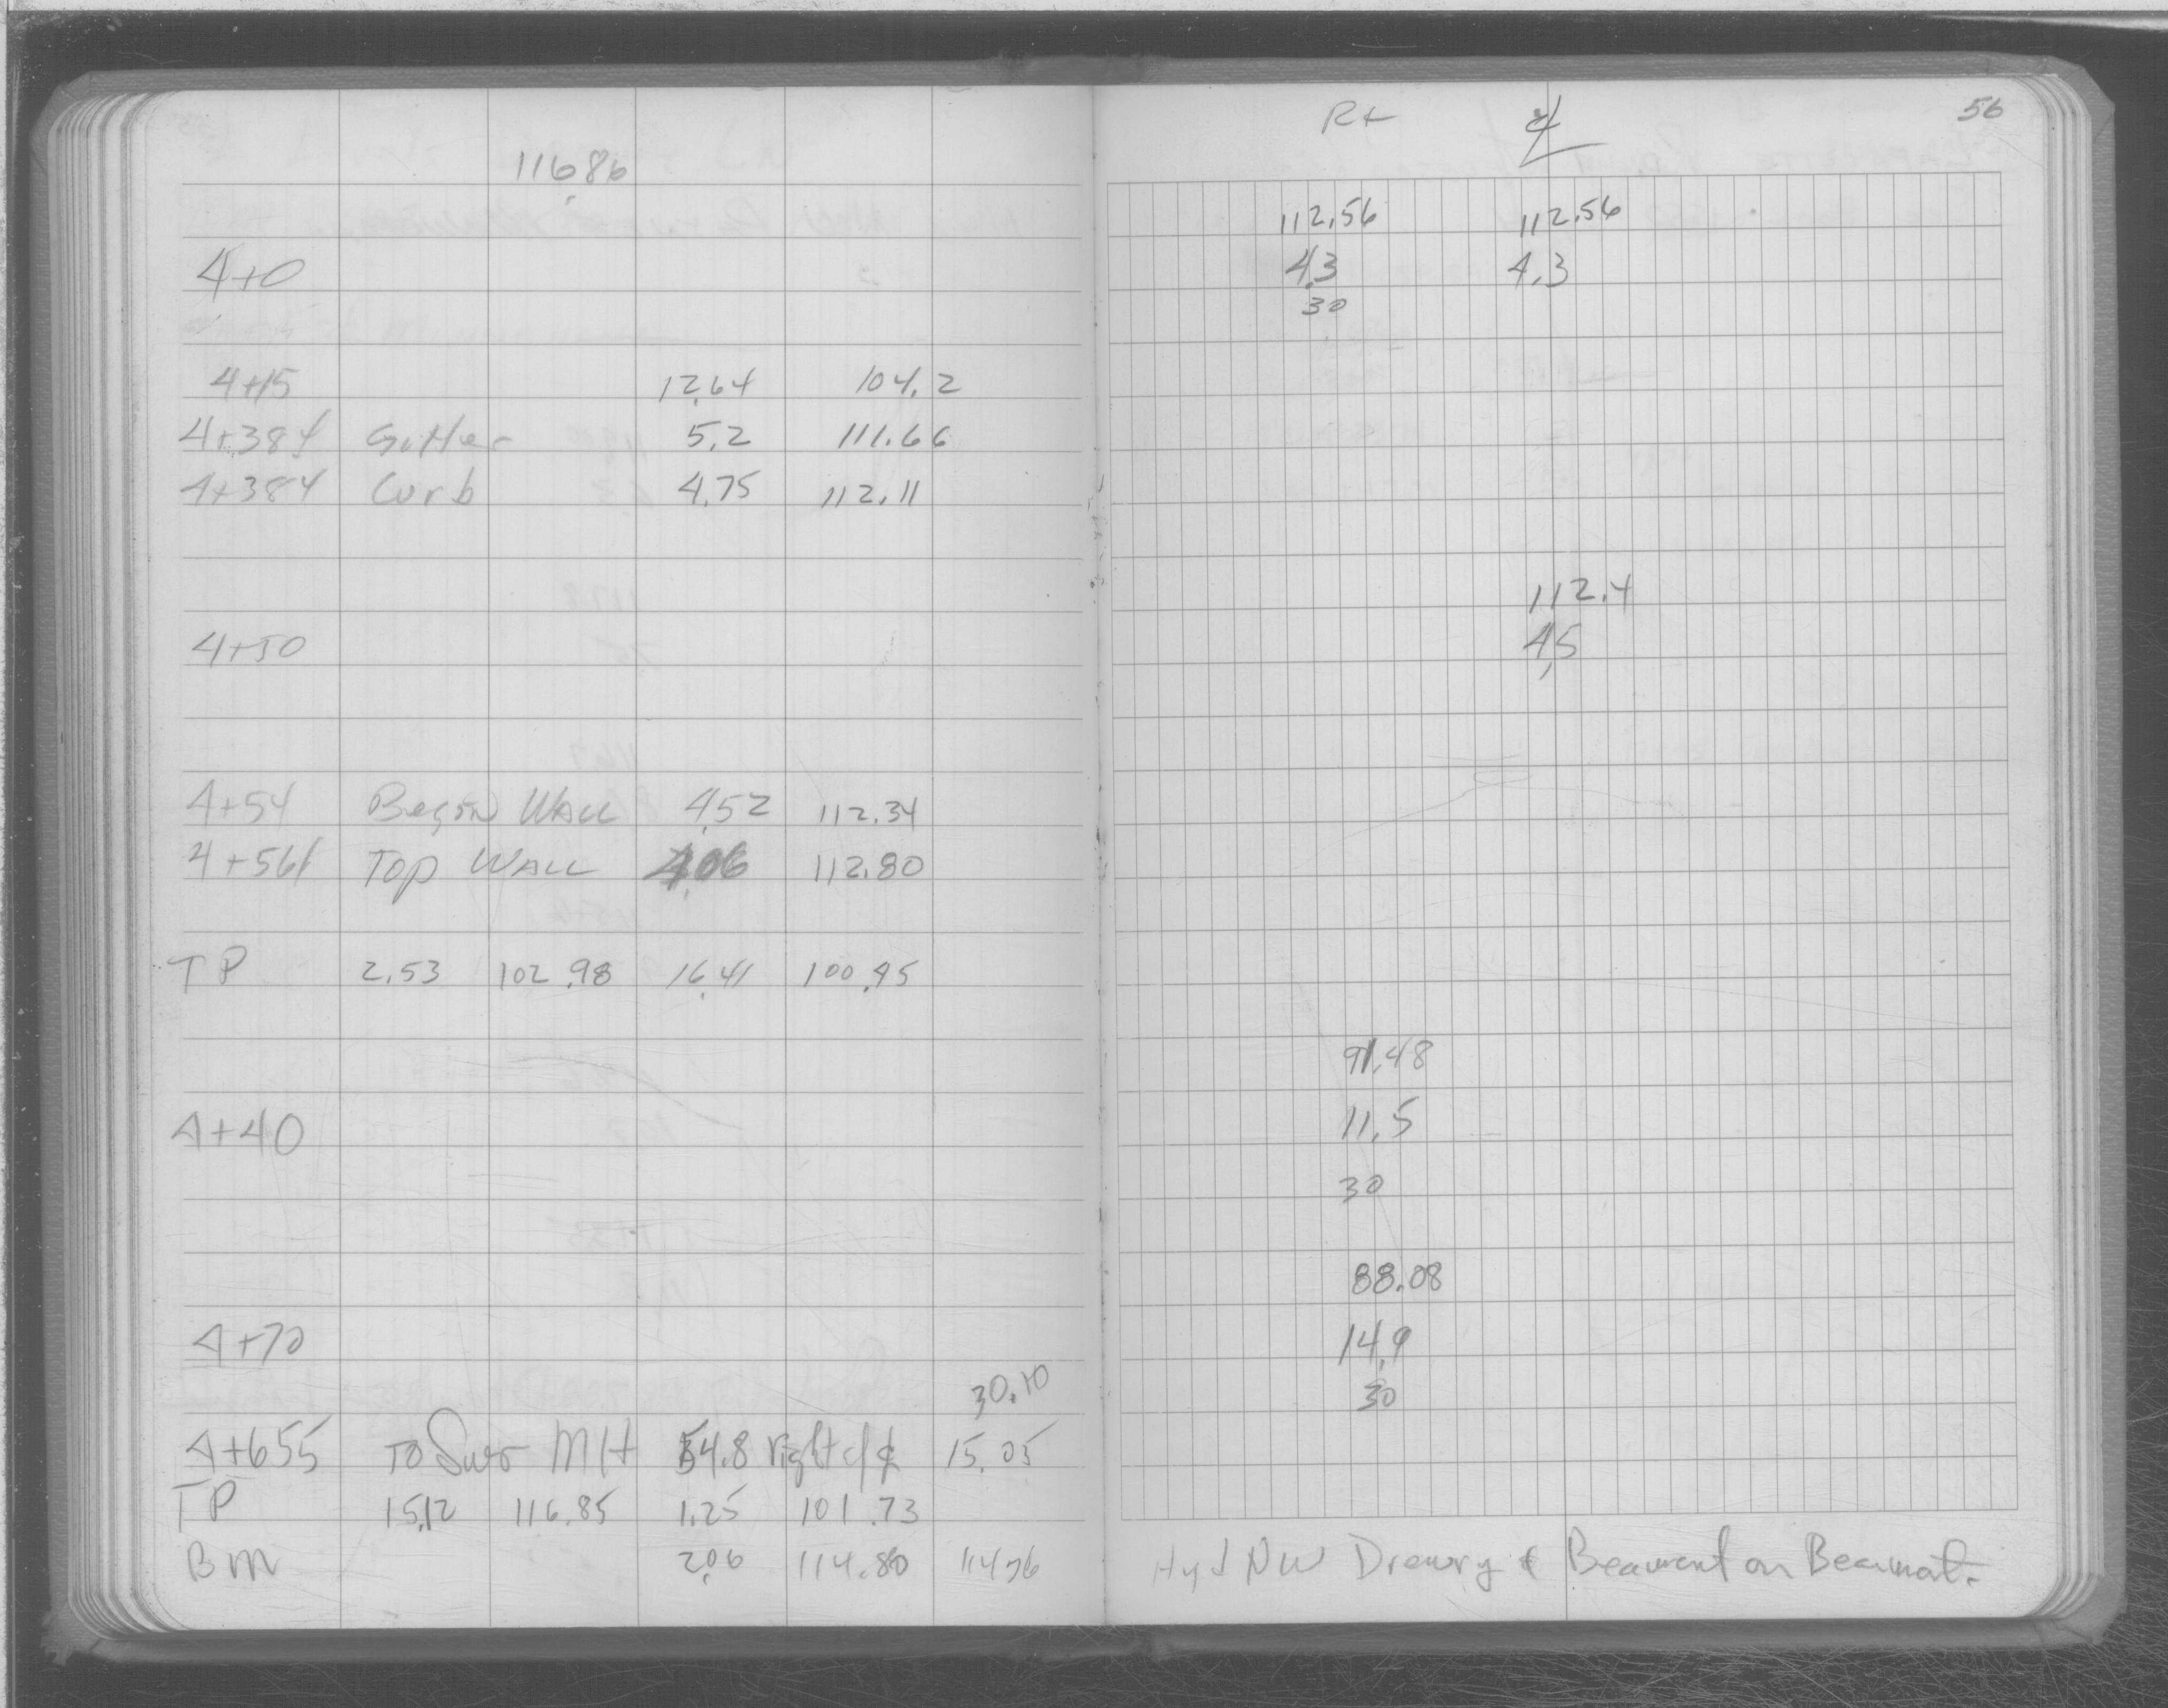 116.86
4+0
4+15 12.64 104.2
4+384 Gutter 5.2 111.66
4+384 Curb 4.75 112.11
4+50
4+54 Begin WALL 4.52 112.34
4+561 Top WALL 4.06 112.80
TP 2.53 102.98 16.41 100.45
4+40
4+70
30.10
4+655 TO Swr MH 54.8 right of ℄ 15.05
TP 15.12 116.85 1.25 101.73
BM 2.06 114.80 114.76
56
Rt ℄
112.56 112.56
4.3 4.3
30
112.4
4.5
91.48
11.5
30
88.08
14.9
30
Hyd NW Drewry & Beaumont on Beaumont.